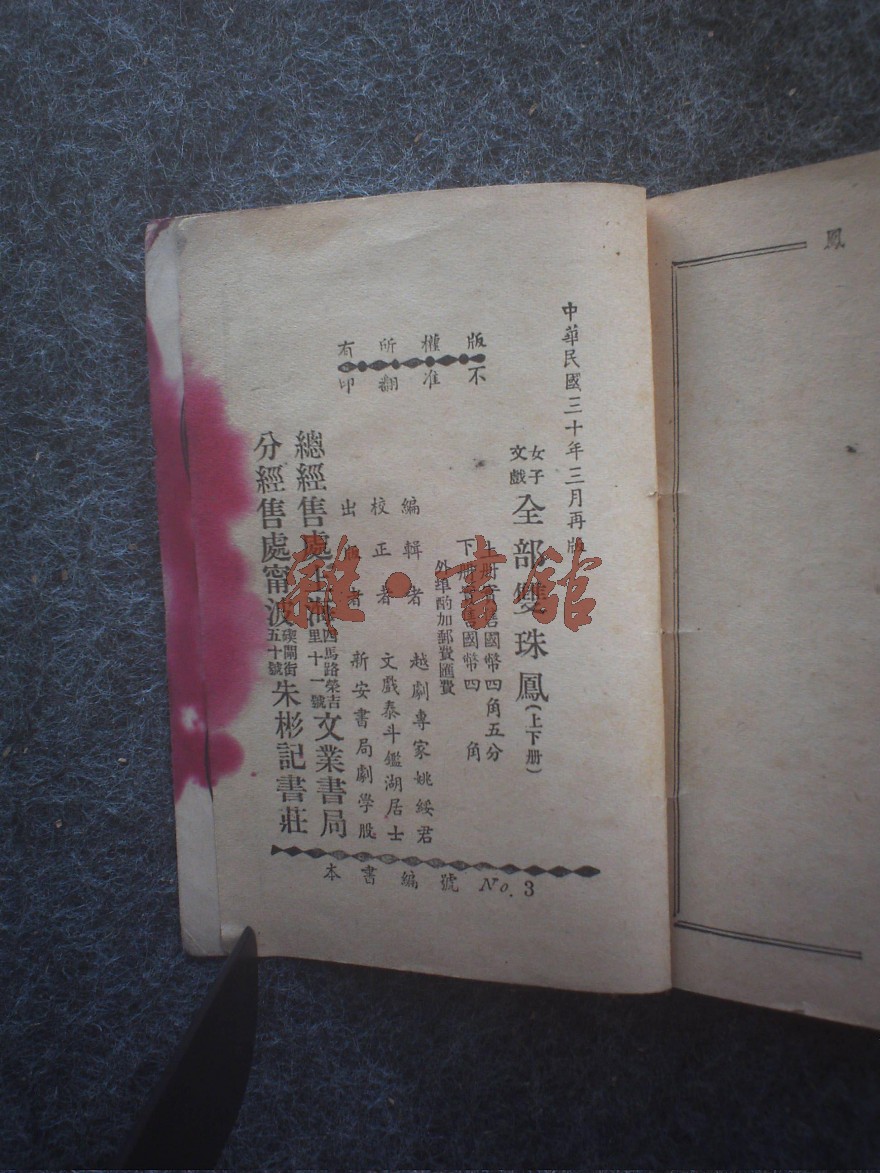 鳳
中華民國三十年三月再版
版權所有
不准翻印
女子
文戲
全部雙珠鳳(上下册)
上册實售國幣四角五分
下册實售國幣四 角
外埠酌加郵費匯費
編輯者 越劇專家姚綏君
校正者 文戲泰斗鑑湖居士
出版者 新安書局劇學股
總經售處上海四馬路榮吉里十一號文業書局
分經售處甯波碶閘街五十號朱彬記書莊
本書編號 No. 3
雜·書館